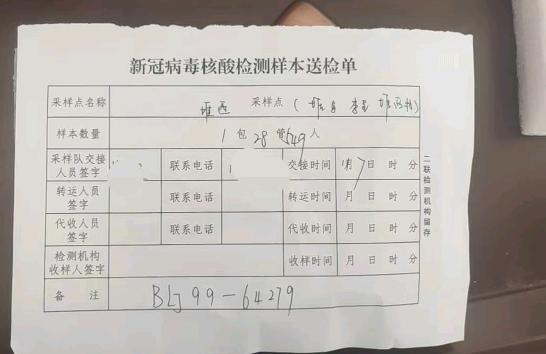 新冠病毒核酸检测样本送检单
采样点名称 堆西 采样点
样本数量 1 包 28 管 549 人
采样队交接人员签字 联系电话 交接时间 月 7 日 时 分
转运人员签字 联系电话 转运时间 月 日 时 分
代收人员签字 联系电话 代收时间 月 日 时 分
检测机构收样人签字 收样时间 月 日 时 分
备 注 BLJ 99-64279
二联检测机构留存